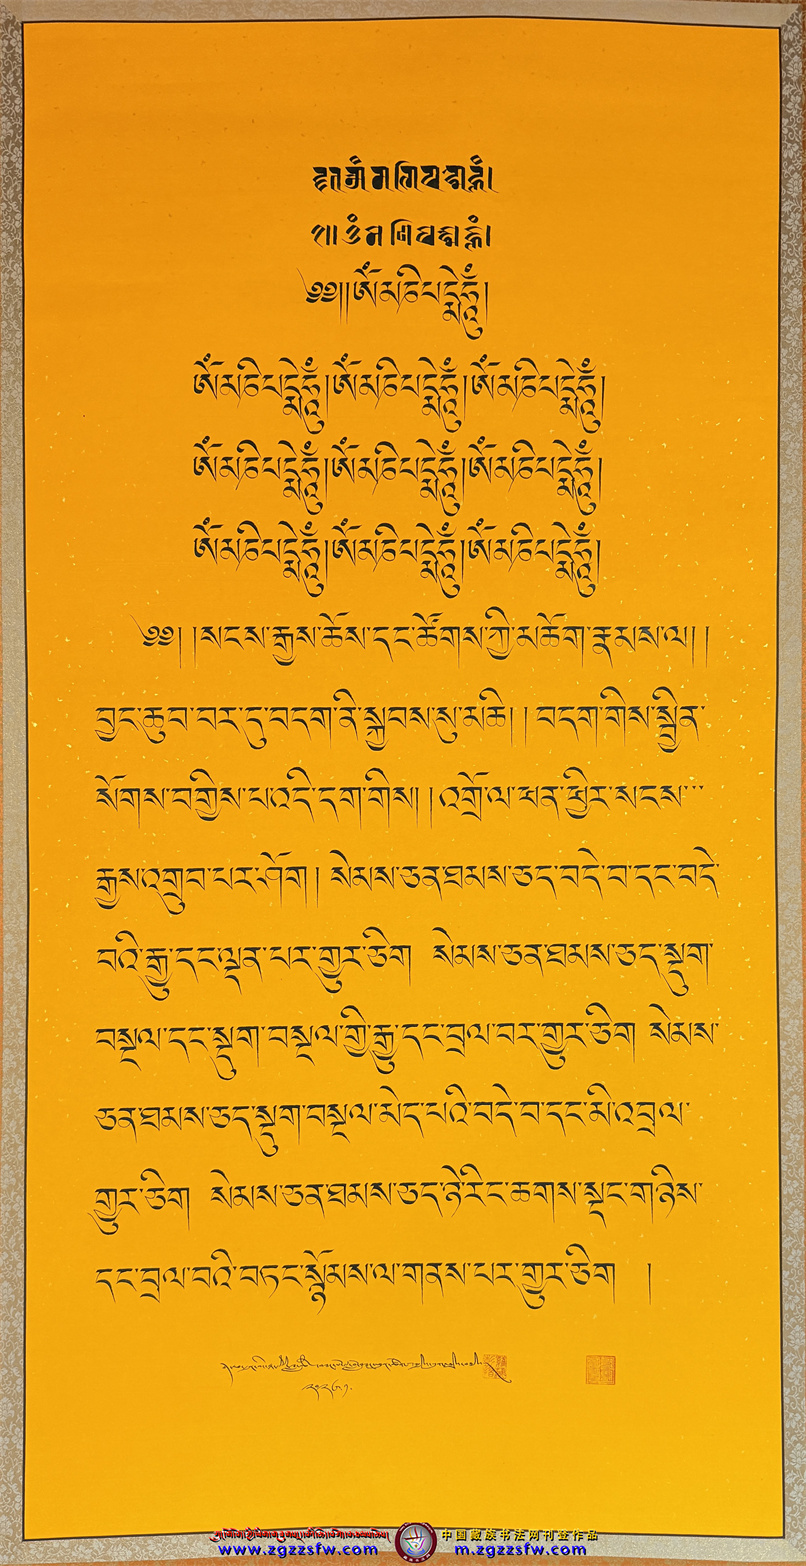 ༄༅།།ཨོཾ་མ་ཎི་པདྨེ་ཧཱུྃ།
ཨོཾ་མ་ཎི་པདྨེ་ཧཱུྃ།ཨོཾ་མ་ཎི་པདྨེ་ཧཱུྃ།ཨོཾ་མ་ཎི་པདྨེ་ཧཱུྃ།
ཨོཾ་མ་ཎི་པདྨེ་ཧཱུྃ།ཨོཾ་མ་ཎི་པདྨེ་ཧཱུྃ།ཨོཾ་མ་ཎི་པདྨེ་ཧཱུྃ།
ཨོཾ་མ་ཎི་པདྨེ་ཧཱུྃ།ཨོཾ་མ་ཎི་པདྨེ་ཧཱུྃ།ཨོཾ་མ་ཎི་པདྨེ་ཧཱུྃ།
༄༅། །སངས་རྒྱས་ཆོས་དང་ཚོགས་ཀྱི་མཆོག་རྣམས་ལ། །
བྱང་ཆུབ་བར་དུ་བདག་ནི་སྐྱབས་སུ་མཆི། །བདག་གིས་སྦྱིན་
སོགས་བགྱིས་པ་འདི་དག་གིས། །འགྲོ་ལ་ཕན་ཕྱིར་སངས་་་
རྒྱས་འགྲུབ་པར་ཤོག། སེམས་ཅན་ཐམས་ཅད་བདེ་བ་དང་བདེ་
བའི་རྒྱུ་དང་ལྡན་པར་གྱུར་ཅིག སེམས་ཅན་ཐམས་ཅད་སྡུག་
བསྔལ་དང་སྡུག་བསྔལ་གྱི་རྒྱུ་དང་བྲལ་བར་གྱུར་ཅིག སེམས་
ཅན་ཐམས་ཅད་སྡུག་བསྔལ་མེད་པའི་བདེ་བ་དང་མི་འབྲལ་
གྱུར་ཅིག སེམས་ཅན་ཐམས་ཅད་ཉེ་རིང་ཆགས་སྡང་གཉིས་
དང་བྲལ་བའི་བཏང་སྙོམས་ལ་གནས་པར་གྱུར་ཅིག །
中国藏族书法网刊登作品
www.zgzzsfw.com m.zgzzsfw.com